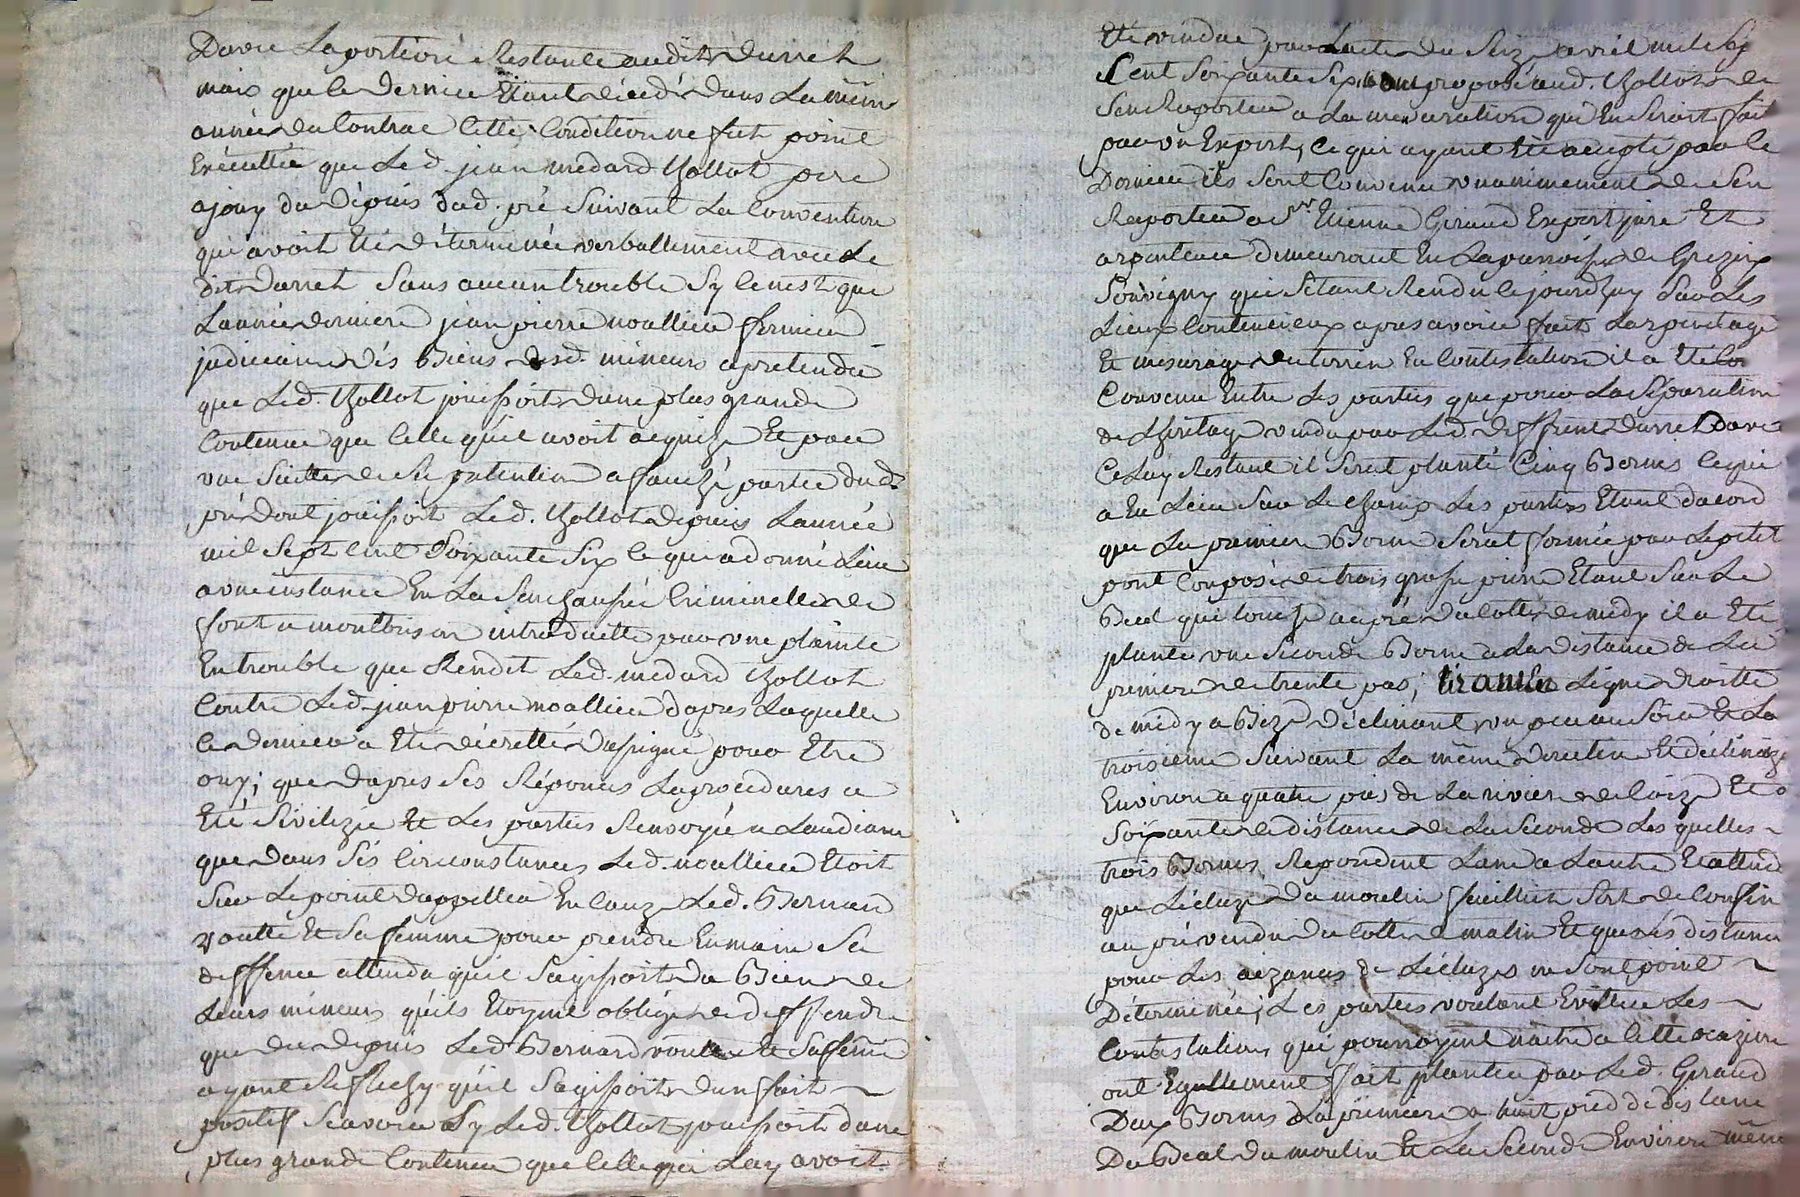 Davec La portion Restante audit Darret
mais que le Dernier Etant décédé dans La même
année du Contrac Cette Condition ne fut point
Exécuttée que Led. jean medard Chollot pere
a jouy du depuis dud. pré Suivant La Convention
qui avoit Eté déterminée verballement avec Le
dit Darret Sans aucun trouble Sy ce nest que
Lannée derniere jean pierre moallier fermier
judiciaire dés Biens desd. mineurs a pretendu
que Led. Chollot jouissoit dune plus grande
Contenue que Celle qu'il avoit acquize Et par
une Suitte de Sa pretention a fauché partie du d.
pré Dont jouissoit Led. Chollot depuis Lannée
mil Sept Cent Soixante Six ce qui a donné Lieu
a une instance En La Senechaussée Criminelle de
forest a montbrison introduitte par une plainte
En trouble que Rendit Led. medard Chollot
Contre Led. jean pierre moallier dapres Laquelle
ce dernier a Eté décretté dassigné pour Etre
ouy; que dapres Ses Réponces La procedures a
Eté Sivilizée Et Les parties Renvoyée a Laudiance
que dans Sés Circonstances Led. moallier Etoit
Sur Le point dappeller En Cauze Led. Bernard
voulle Et Sa femme pour prendre En main Sa
deffence attendu qu'il Sagissoit du Bien de
Leurs mineurs qu'ils Etoyent obligé de deffendre
que du depuis Led. Bernard voulle Et Sa femme
ayant Reflechy qu'il Sagissoit dun fait
positif Scavoir Sy Led. Chollot jouissoit dune
plus grande Contenue que Celle qui Luy avoit
Eté vendue par Lacte du Seize avril mil Sept
Cent Soixante Six ont proposé aud. Chollot de
Sen Raporter a La mesuration qui En Seroit fait
par un Expert, ce qui ayant Eté accepté par le
Dernier ils Sont Convenu unanimement de Sen
Raporter a Sr. Etienne Giraud Expert juré Et
arpenteur demeurant En La parroisse de Grezieux
Souvigny qui Sétant Rendu le jourdhuy Sur Les
Lieux Contencieux apres avoir fait Larpentage
Et mesurage du terrein En Contestation il a Eté
Convenu Entre Les parties que pour La Séparation
de Lheritage vendu par Led. deffunt Darret Davec
Celuy Restant il Seroit planté Cinq Bornes ce qui
a Eu Lieu Sur Le Champ Les parties Etant dacord
que La premiere Borne Seroit formée par Le petit
pont Composé de trois grosse pierre Etant Sur Le
Béal qui touche au pré du Cotté de midy il a Eté
planté une Seconde Borne a La distance de La
premiere de trente pas, tirant En Ligne droitte
de midy a Bize déclinant un peu au Soir Et La
troisieme Suivant La même direction Et déclinaize
Environ a quatre pieds de La riviere de Coize Et a
Soixante de distance de La Seconde Les quelles
trois Bornes Repondent Lune a Lautre Et attendu
que Lécluze du moulin Sert de Confin
au pré vendu du Cotté de matin Et que Les distance
pour Les aizances de Lécluzes ne Sont point
Déterminée; Les parties voulant Eviter Les
Contestations qui pourroyent naitre a Cette ocazion
ont Egallement fait planter par Led. Giraud
Deux Bornes La premiere a huit pied de distance
Du Béal du moulin Et La Seconde Environ même